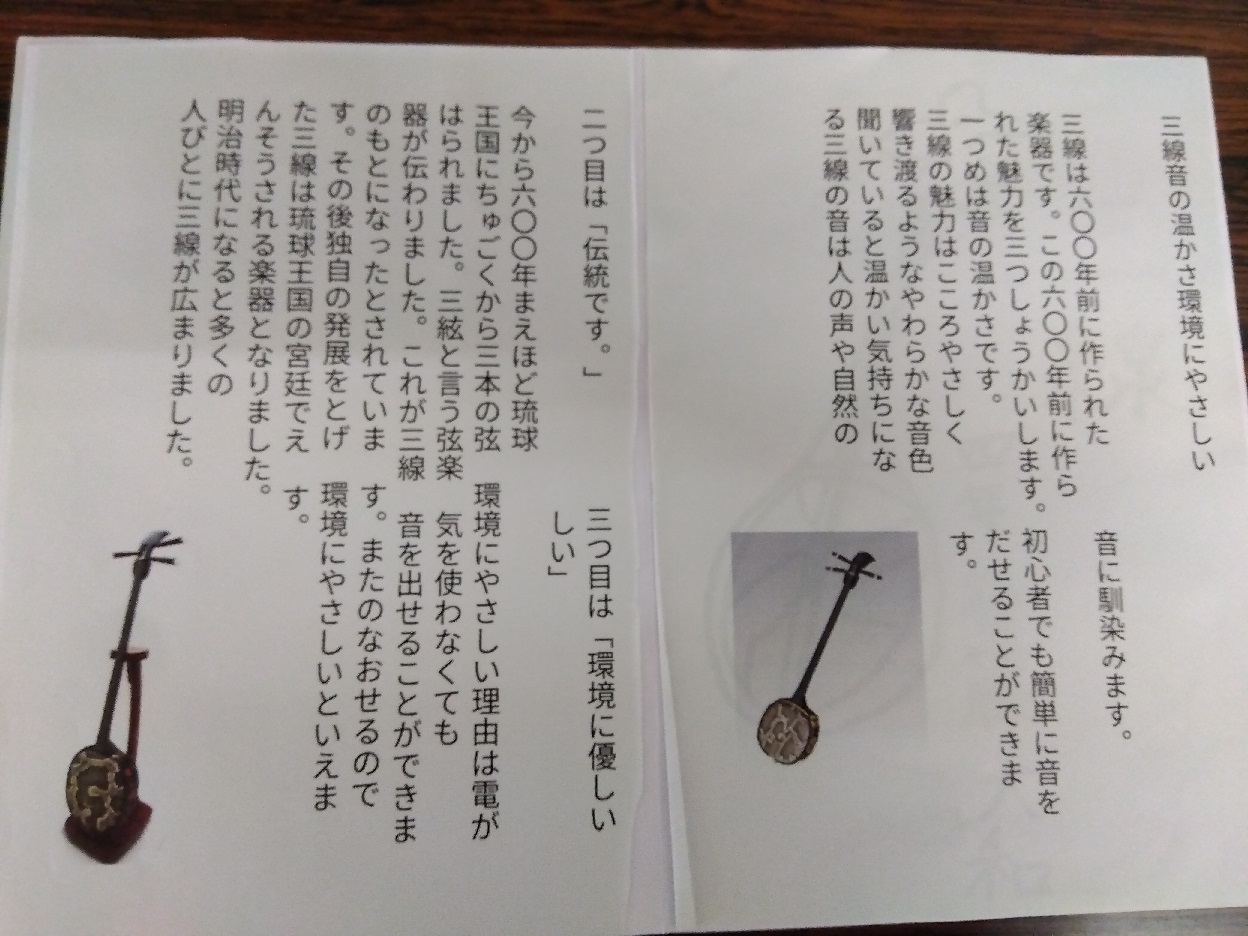 三線音の温かさ環境にやさしい
三線は六〇〇年前に作られた
楽器です。この六〇〇年前に作ら
れた魅力を三つしょうかいします。
一つめは音の温かさです。
三線の魅力はこころやさしく
響き渡るようなやわらかな音色
聞いていると温かい気持ちにな
る三線の音は人の声や自然の
音に馴染みます。
初心者でも簡単に音を
だせることができま
す。
二つ目は「伝統です。」
今から六〇〇年まえほど琉球
王国にちゅごくから三本の弦
はられました。三絃と言う弦楽
器が伝わりました。これが三線
のもとになったとされていま
す。その後独自の発展をとげ
た三線は琉球王国の宮廷でえ
んそうされる楽器となりました。
明治時代になると多くの
人びとに三線が広まりました。
三つ目は「環境に優しい
しい」
環境にやさしい理由は電が
気を使わなくても
音を出せることができま
す。またのなおせるので
環境にやさしいといえま
す。